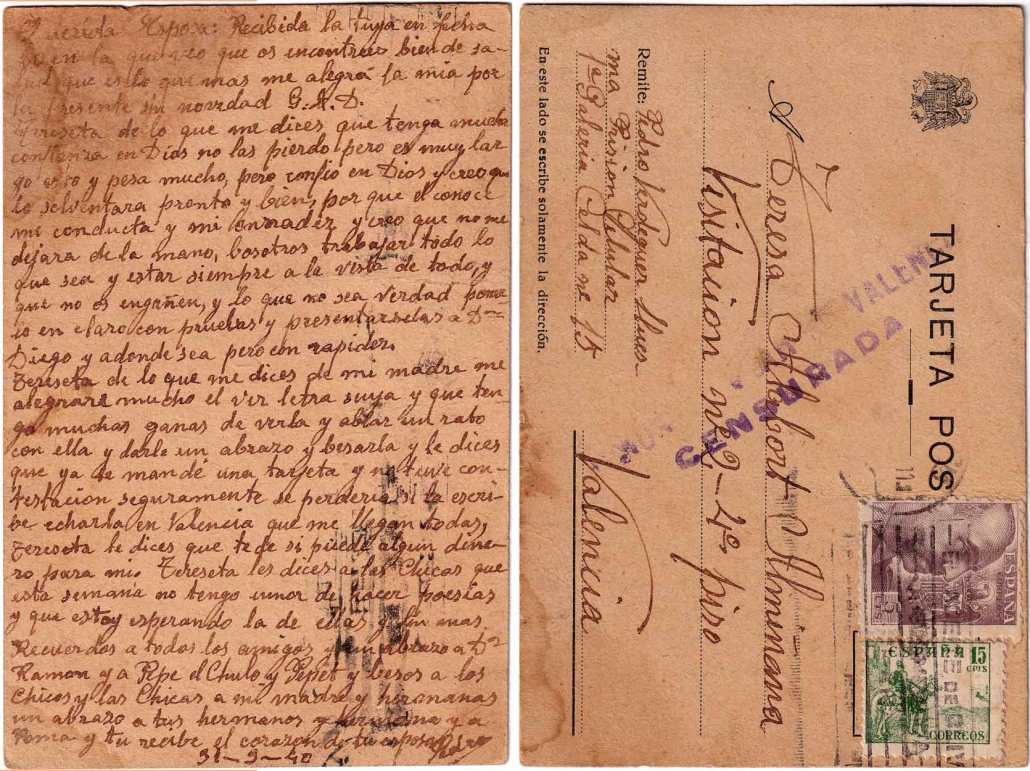 Querida Esposa: Recibida la tuya en fecha
30 en la que veo que os encontrais bien de sa-
lud que es lo que mas me alegra la mia por
la presente sin novedad G.A.D.
Tereseta de lo que me dices que tenga mucha
confianza en Dios no las pierdo pero es muy lar
go esto y pesa mucho, pero confio en Dios y creo que
lo solventara pronto y bien, por que el conoce
mi conducta y mi onrradez y creo que no me
dejara de la mano, bosotros trabajar todo lo
que sea y estar siempre a la vista de todo, y
que no os engañen, y lo que no sea verdad poner
lo en claro con pruebas y presentarselas a Dn
Diego y adonde sea pero con rapidez.
Tereseta de lo que me dices de mi madre me
alegrare mucho el vir letra suya y que ten-
go muchas ganas de verla y ablar un rato
con ella y darle un abrazo y besarla y le dices
que ya le mandé una tarjeta y no tuve con-
testacion seguramente se perderia si la escri-
be echarla en Valencia que me llegan todas,
Tereseta le dices que te de si puede algun dine-
ro para mi. Tereseta les dices a las Chicas que
esta semana no tengo umor de hacer poesias
y que estoy esperando la de ellas y sin mas
Recuerdos a todos los amigos y un abrazo a Dn
Ramon y a Pepe el Chulo y Pepet y besos a los
Chicos y las Chicas a mi madre y hermanas
un abrazo a tus hermanos y hermana y a
Toma y tu recibe el corazon de tu esposo Pedro
31-3-40
TARJETA POS
A Teresa Albiort Almiñana
Visitacion nº 2-4º piso
Valencia
Remite: Pedro Verdeguer Llues
ma Prision Celular
1ª Galeria Celda nº 15
En este lado se escribe solamente la dirección.
VALENC
CENSURADA
ESPAÑA
ESPAÑA 15
CTMS
CORREOS